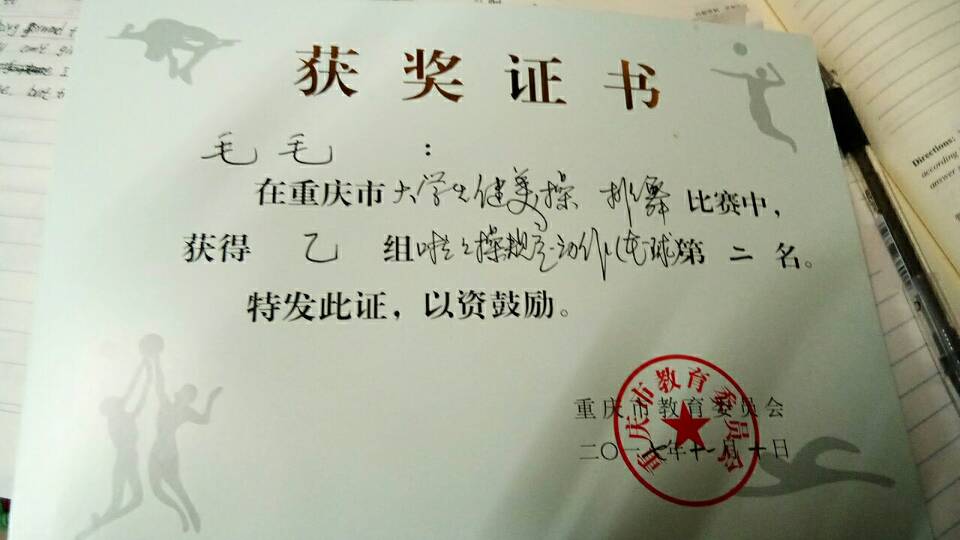 获奖证书
毛毛：
在重庆市大学生健美操 排舞比赛中，
获得 乙 组啦啦操规定动作(花球)第 二 名。
特发此证，以资鼓励。
重庆市教育委员会
二〇一七年十一月十日
重庆市教育委员会
Directions:
according
answer s